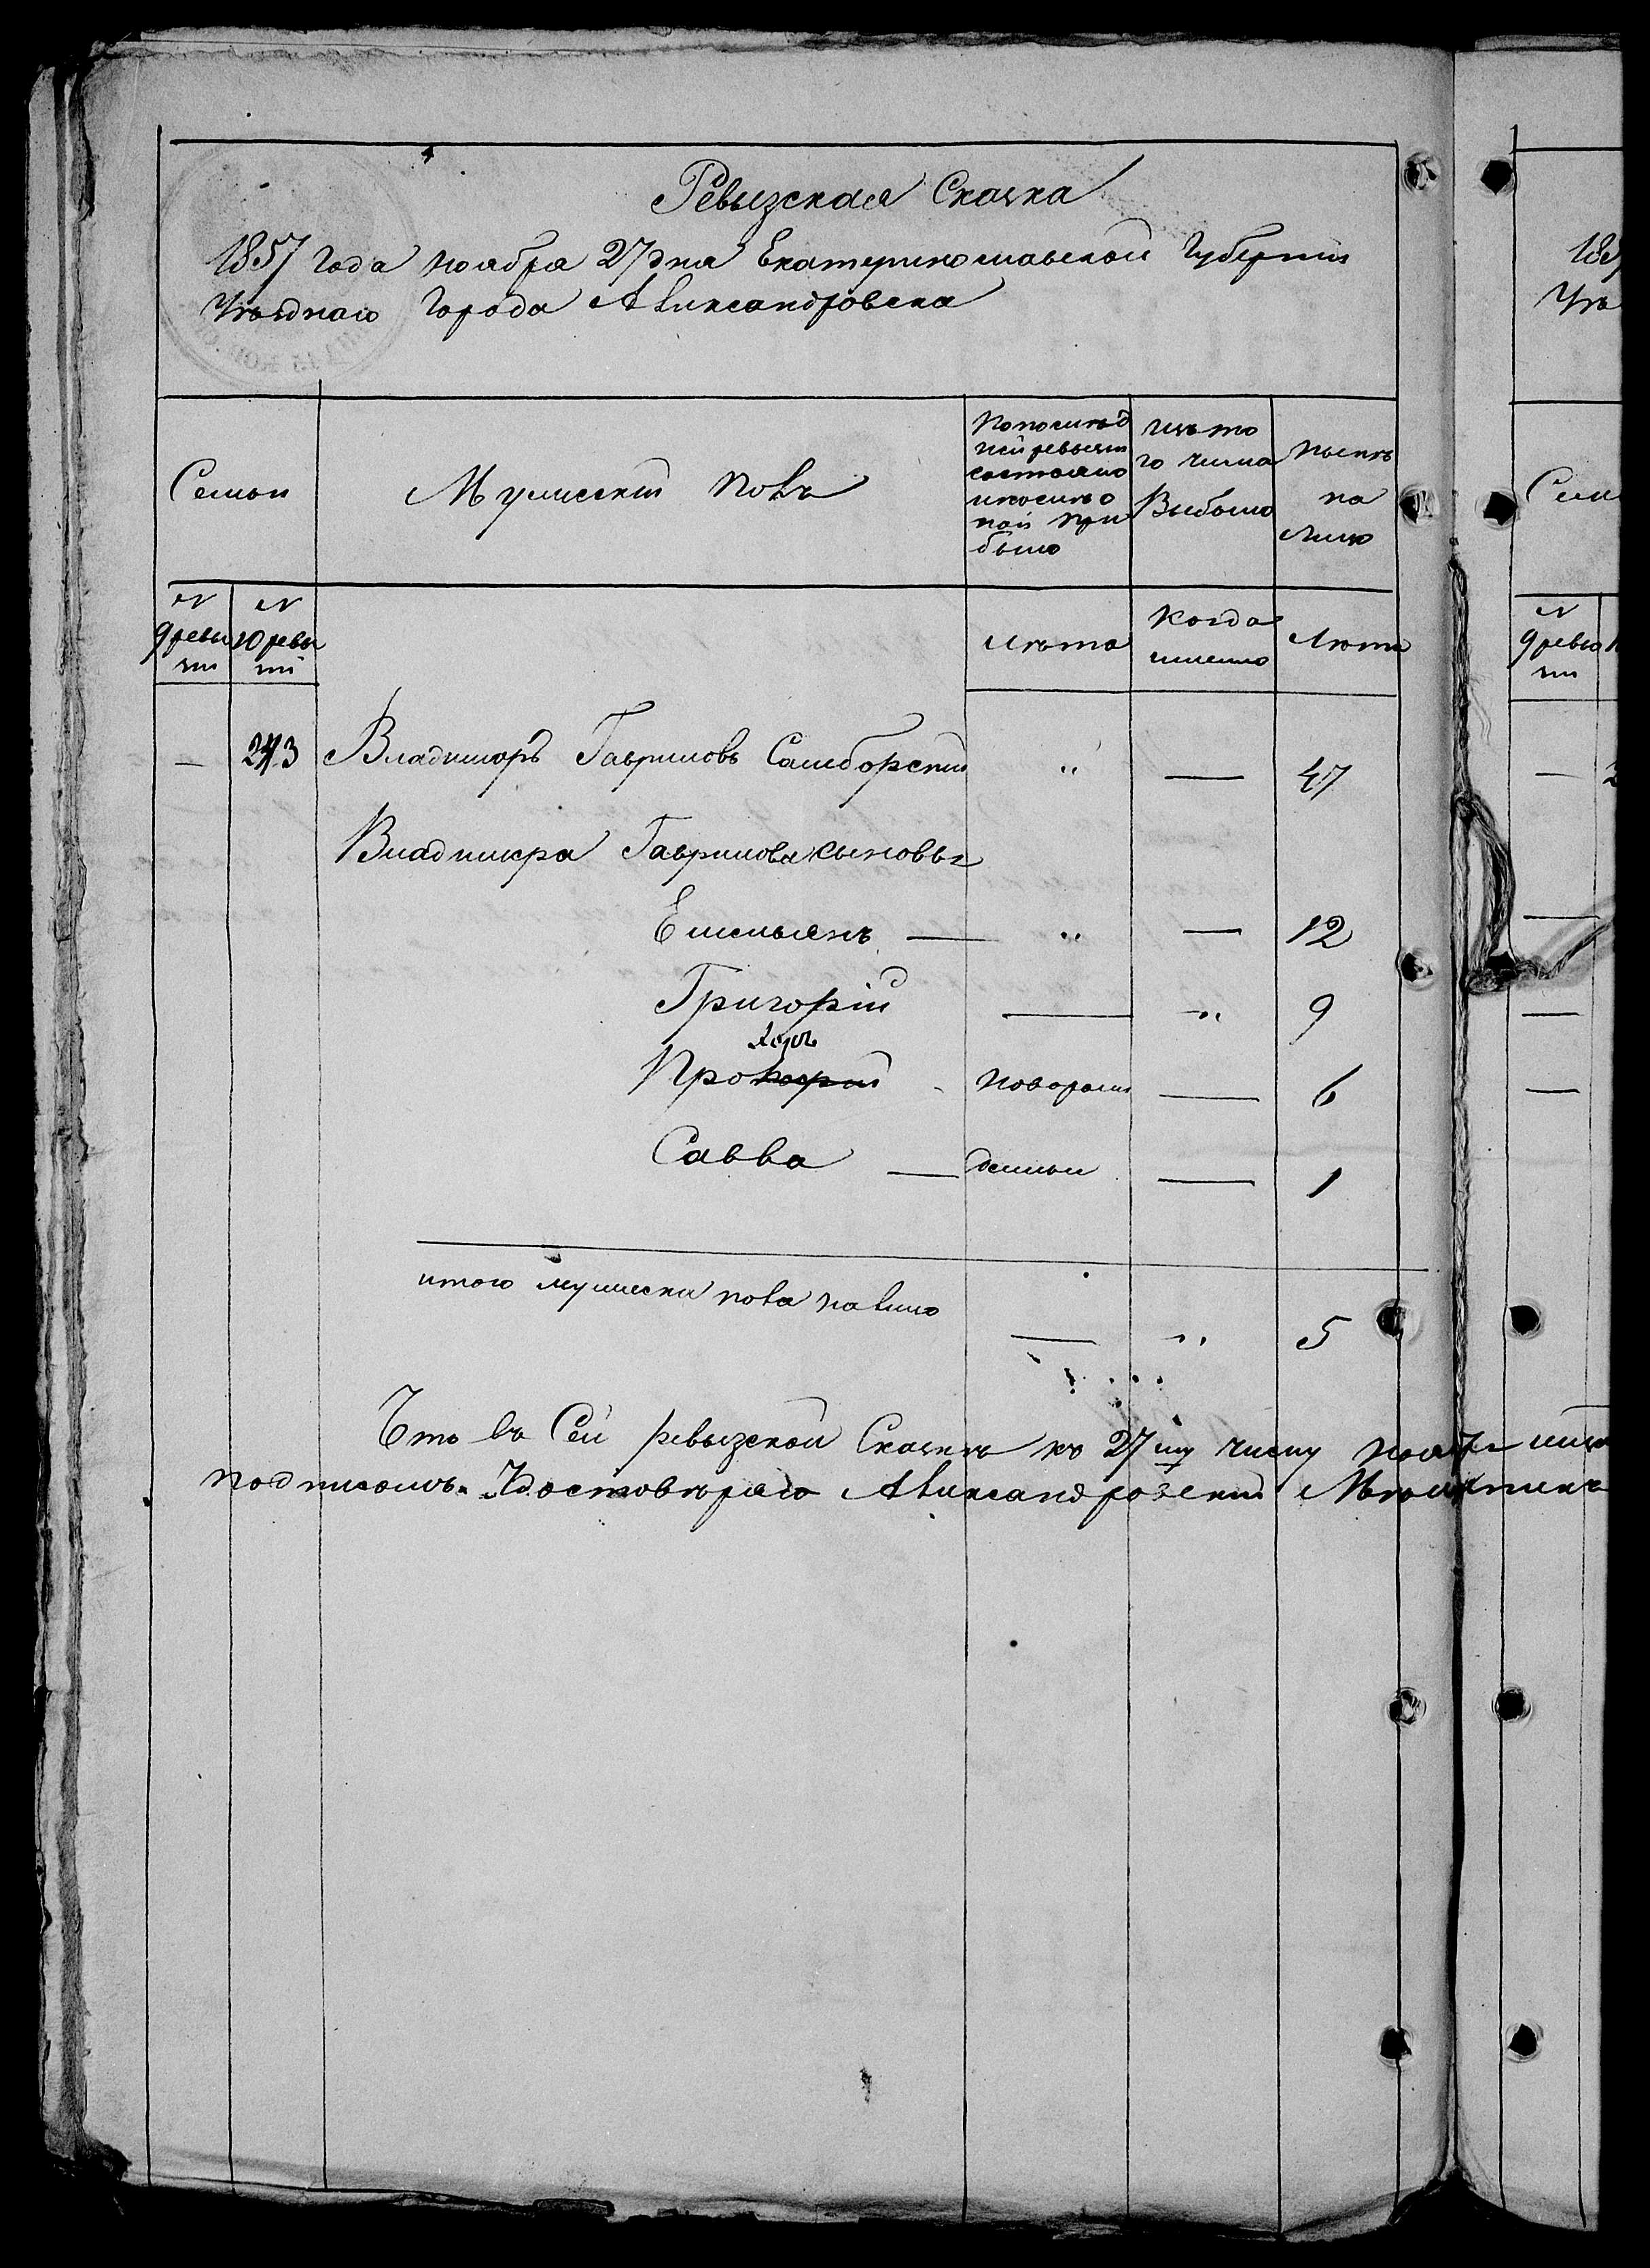 Ревызская Скаска
1857 года ноабра 27 дна Екатеринославской Губернии
Уезднаго Города Аликсандровска
Семьи
Мужеский полъ
По послѣд
ней ревызии
состояло
и после о
ной при
было
Изъ то
го числа
Выбыло
Ныне
на
лицо
N
9 ревы
зии
N
10 ревы
зии
Лѣта
Когда
именно
Лета
— 243 Владимиръ Гавриловъ Самборский " — 47
Владимира Гаврилова сыновья
Емельянъ — " — 12
Григорий — " 9
Прокофий новорож — 6
Савва — денные — 1
итого мужеска пола на лицо — " 5
Что въ Сей ревызской Скаске къ 27му числу
подписомъ. Удостоверяю Аликсандровский Мѣщанинъ
185
Уѣ
Сем
N
9 ревы
зии